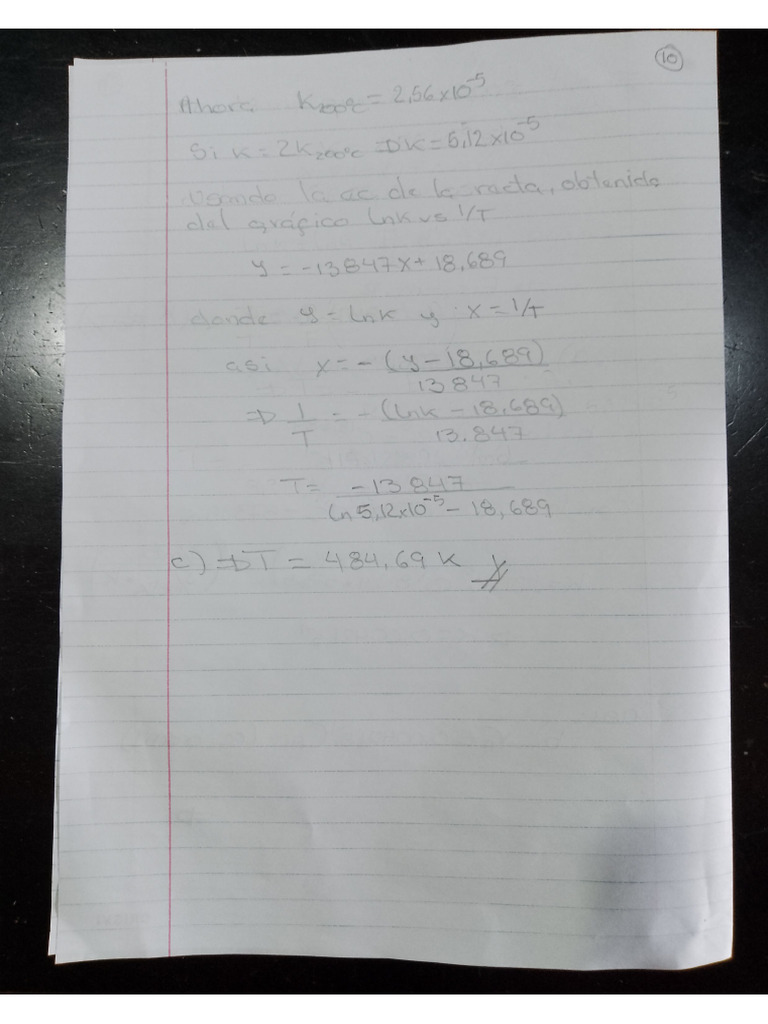 10
Ahora K200°C = 2,56x10^-5
Si K = 2K200°C => K = 5,12x10^-5
Usando la ec. de la recta, obtenida
del gráfico LnK vs 1/T
y = -13847x + 18,689
donde y = LnK y x = 1/T
así x = -(y - 18,689)/13847
=> 1/T = -(LnK - 18,689)/13.847
T = -13847/(Ln 5,12x10^-5 - 18,689)
c) => T = 484,69 K